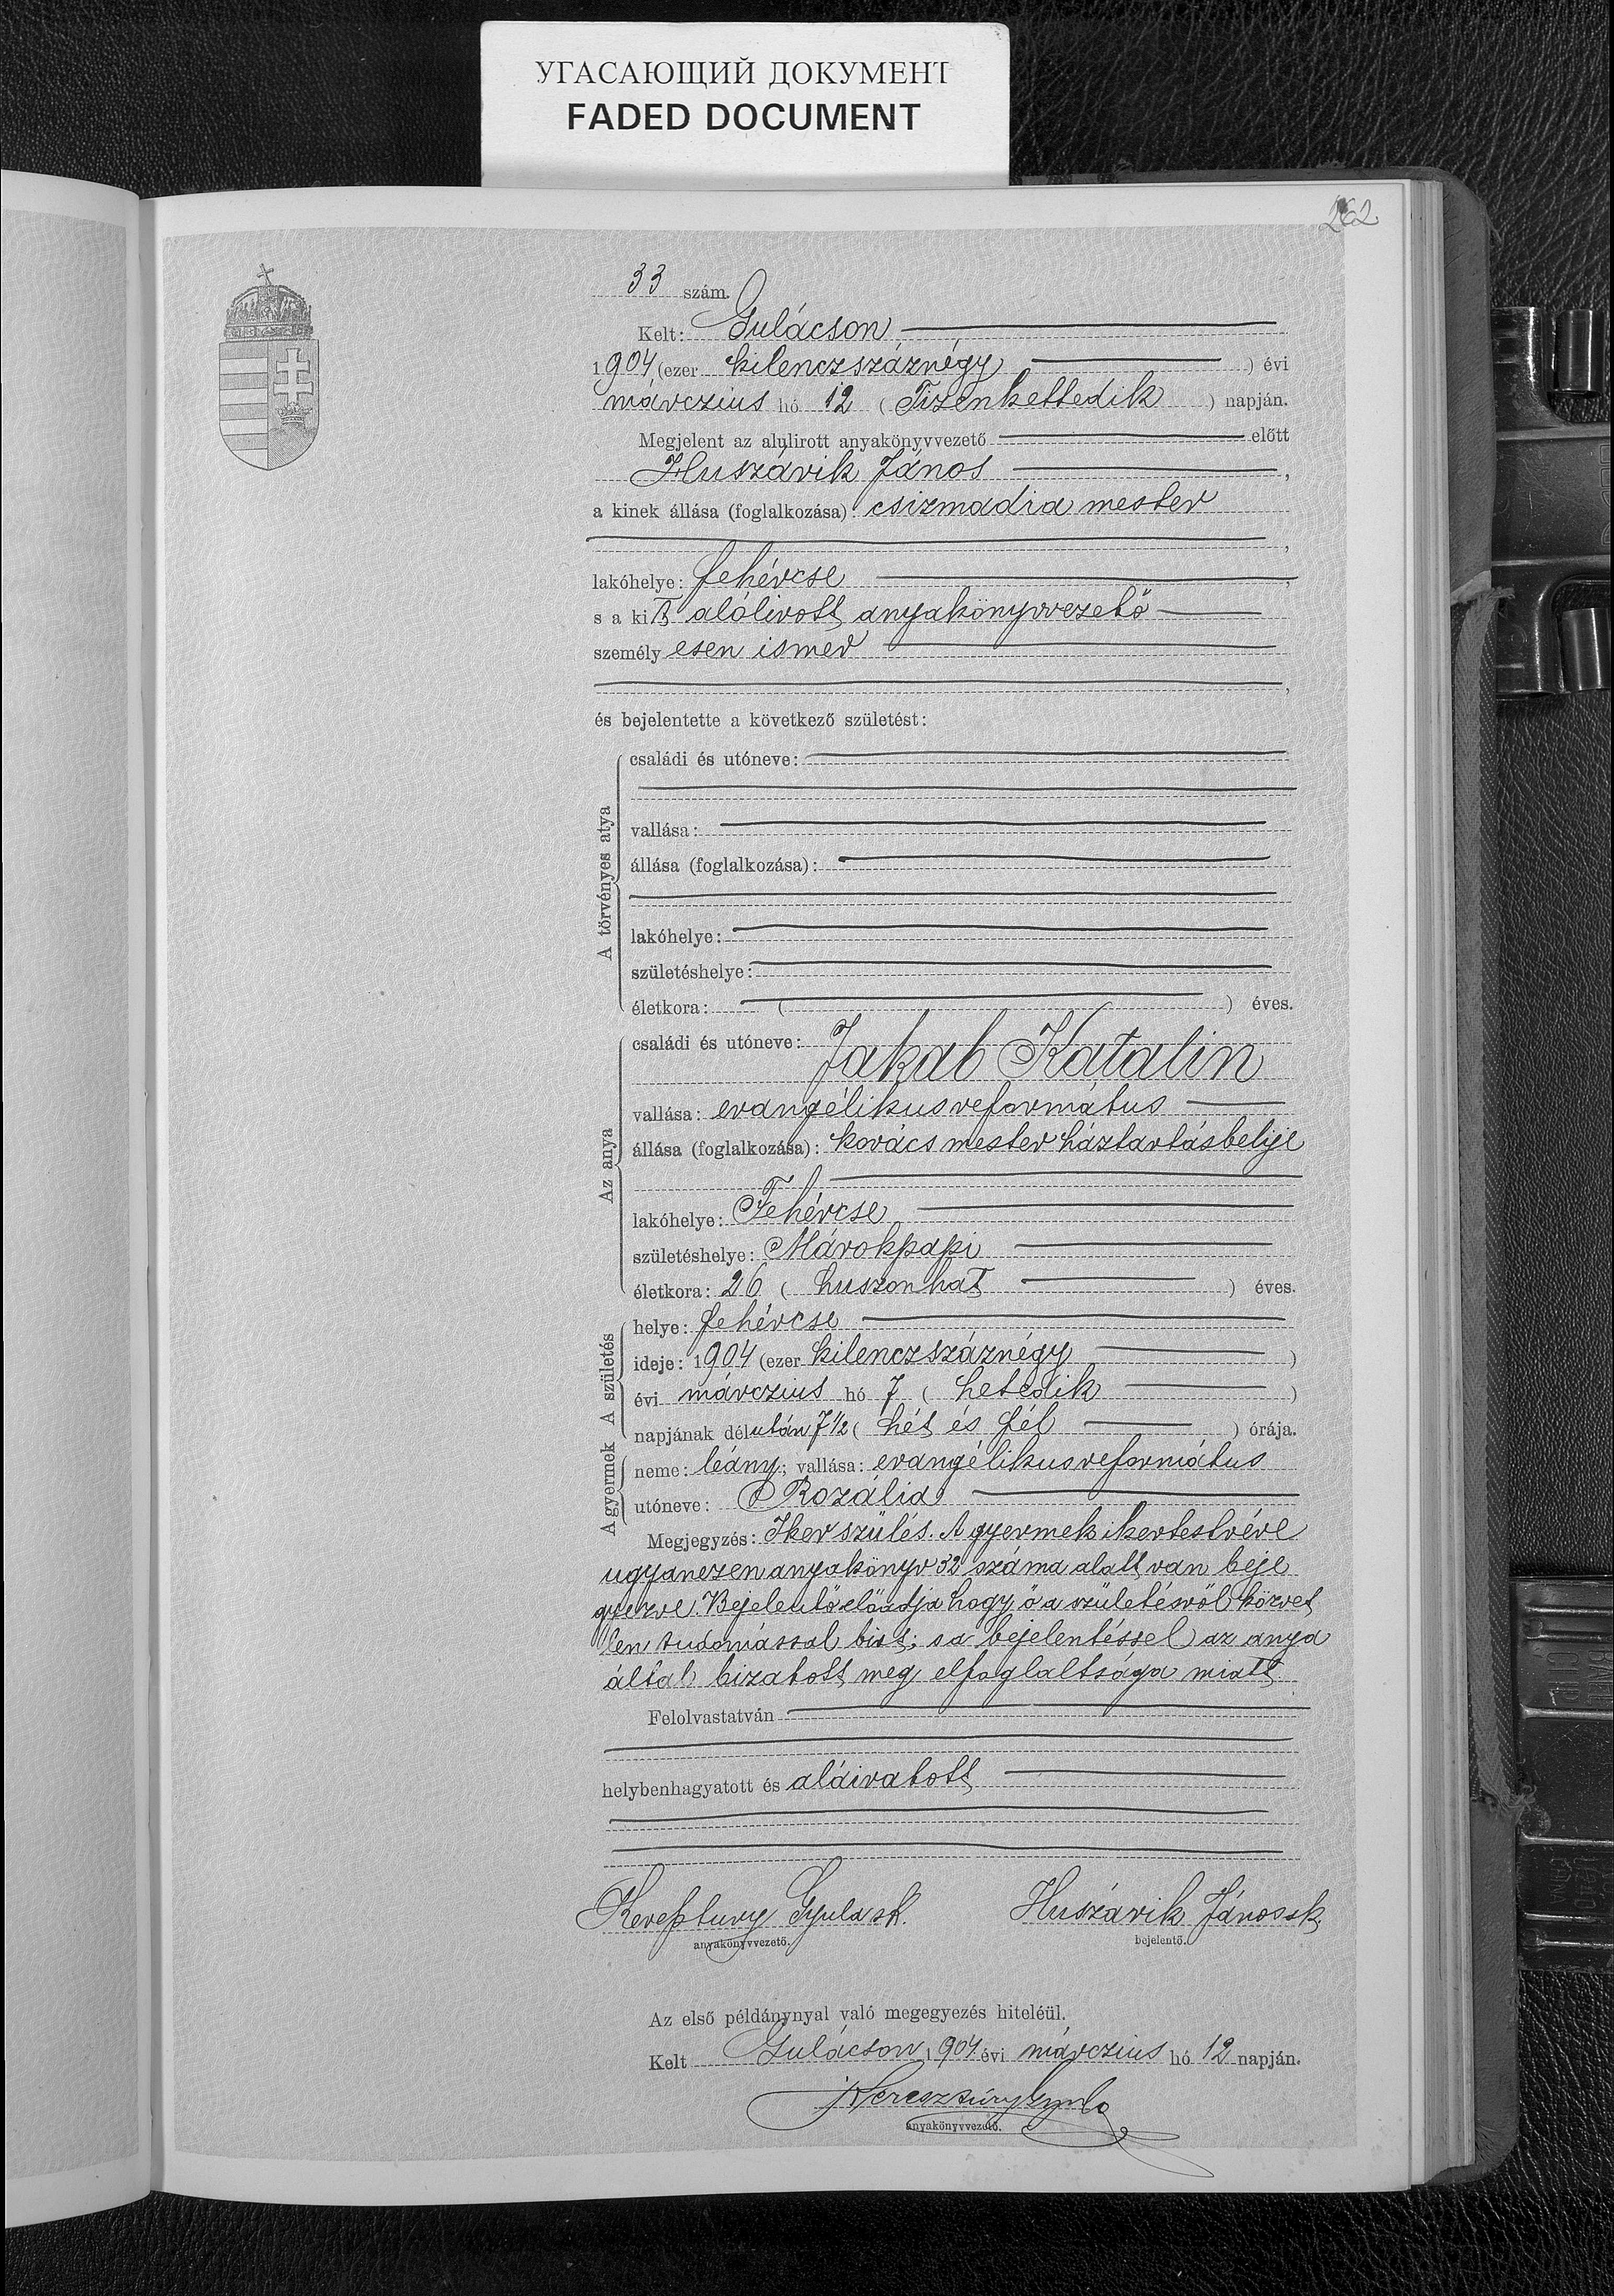 УГАСАЮЩИЙ ДОКУМЕНТ
FADED DOCUMENT
262
33 szám.
Kelt: Gulácson
1904 (ezer kilenczszáznégy ) évi
márczius hó 12 ( Tizenkettedik ) napján.
Megjelent az alulirott anyakönyvvezető előtt
Huszárik János ,
a kinek állása (foglalkozása) csizmadia mester
,
lakóhelye: Fehércse ,
s a kit alólirott anyakönyvvezető
személy esen ismer
,
és bejelentette a következő születést:
A törvényes atya
családi és utóneve:
vallása:
állása (foglalkozása):
lakóhelye:
születéshelye:
életkora: ( ) éves.
Az anya
családi és utóneve: Jakab Katalin
vallása: evangélikus református
állása (foglalkozása): kovács mester háztartásbelije
lakóhelye: Fehércse
születéshelye: Márokpapi
életkora: 26 ( huszonhat ) éves.
A születés
helye: Fehércse
ideje: 1904 (ezer kilenczszáznégy )
évi márczius hó 7 ( hetedik )
napjának délután 7½ ( hét és fél ) órája.
A gyermek
neme: leány; vallása: evangélikus református
utóneve: Rozália
Megjegyzés: Iker szülés. A gyermek ikertestvére
ugyanezen anyakönyv 32 száma alatt van beje
gyezve. Bejelentő előadja hogy ő a születésről közvet
len tudomással bir; s a bejelentéssel az anya
által bizatott meg elfoglaltsága miatt.
Felolvastatván
helybenhagyatott és aláiratott
Kereßtury Gyula sk.
anyakönyvvezető.
Huszárik János sk.
bejelentő.
Az első példánynyal való megegyezés hiteléül.
Kelt Gulácson 1904 évi márczius hó 12 napján.
Keresztúry Gyula
anyakönyvvezető.